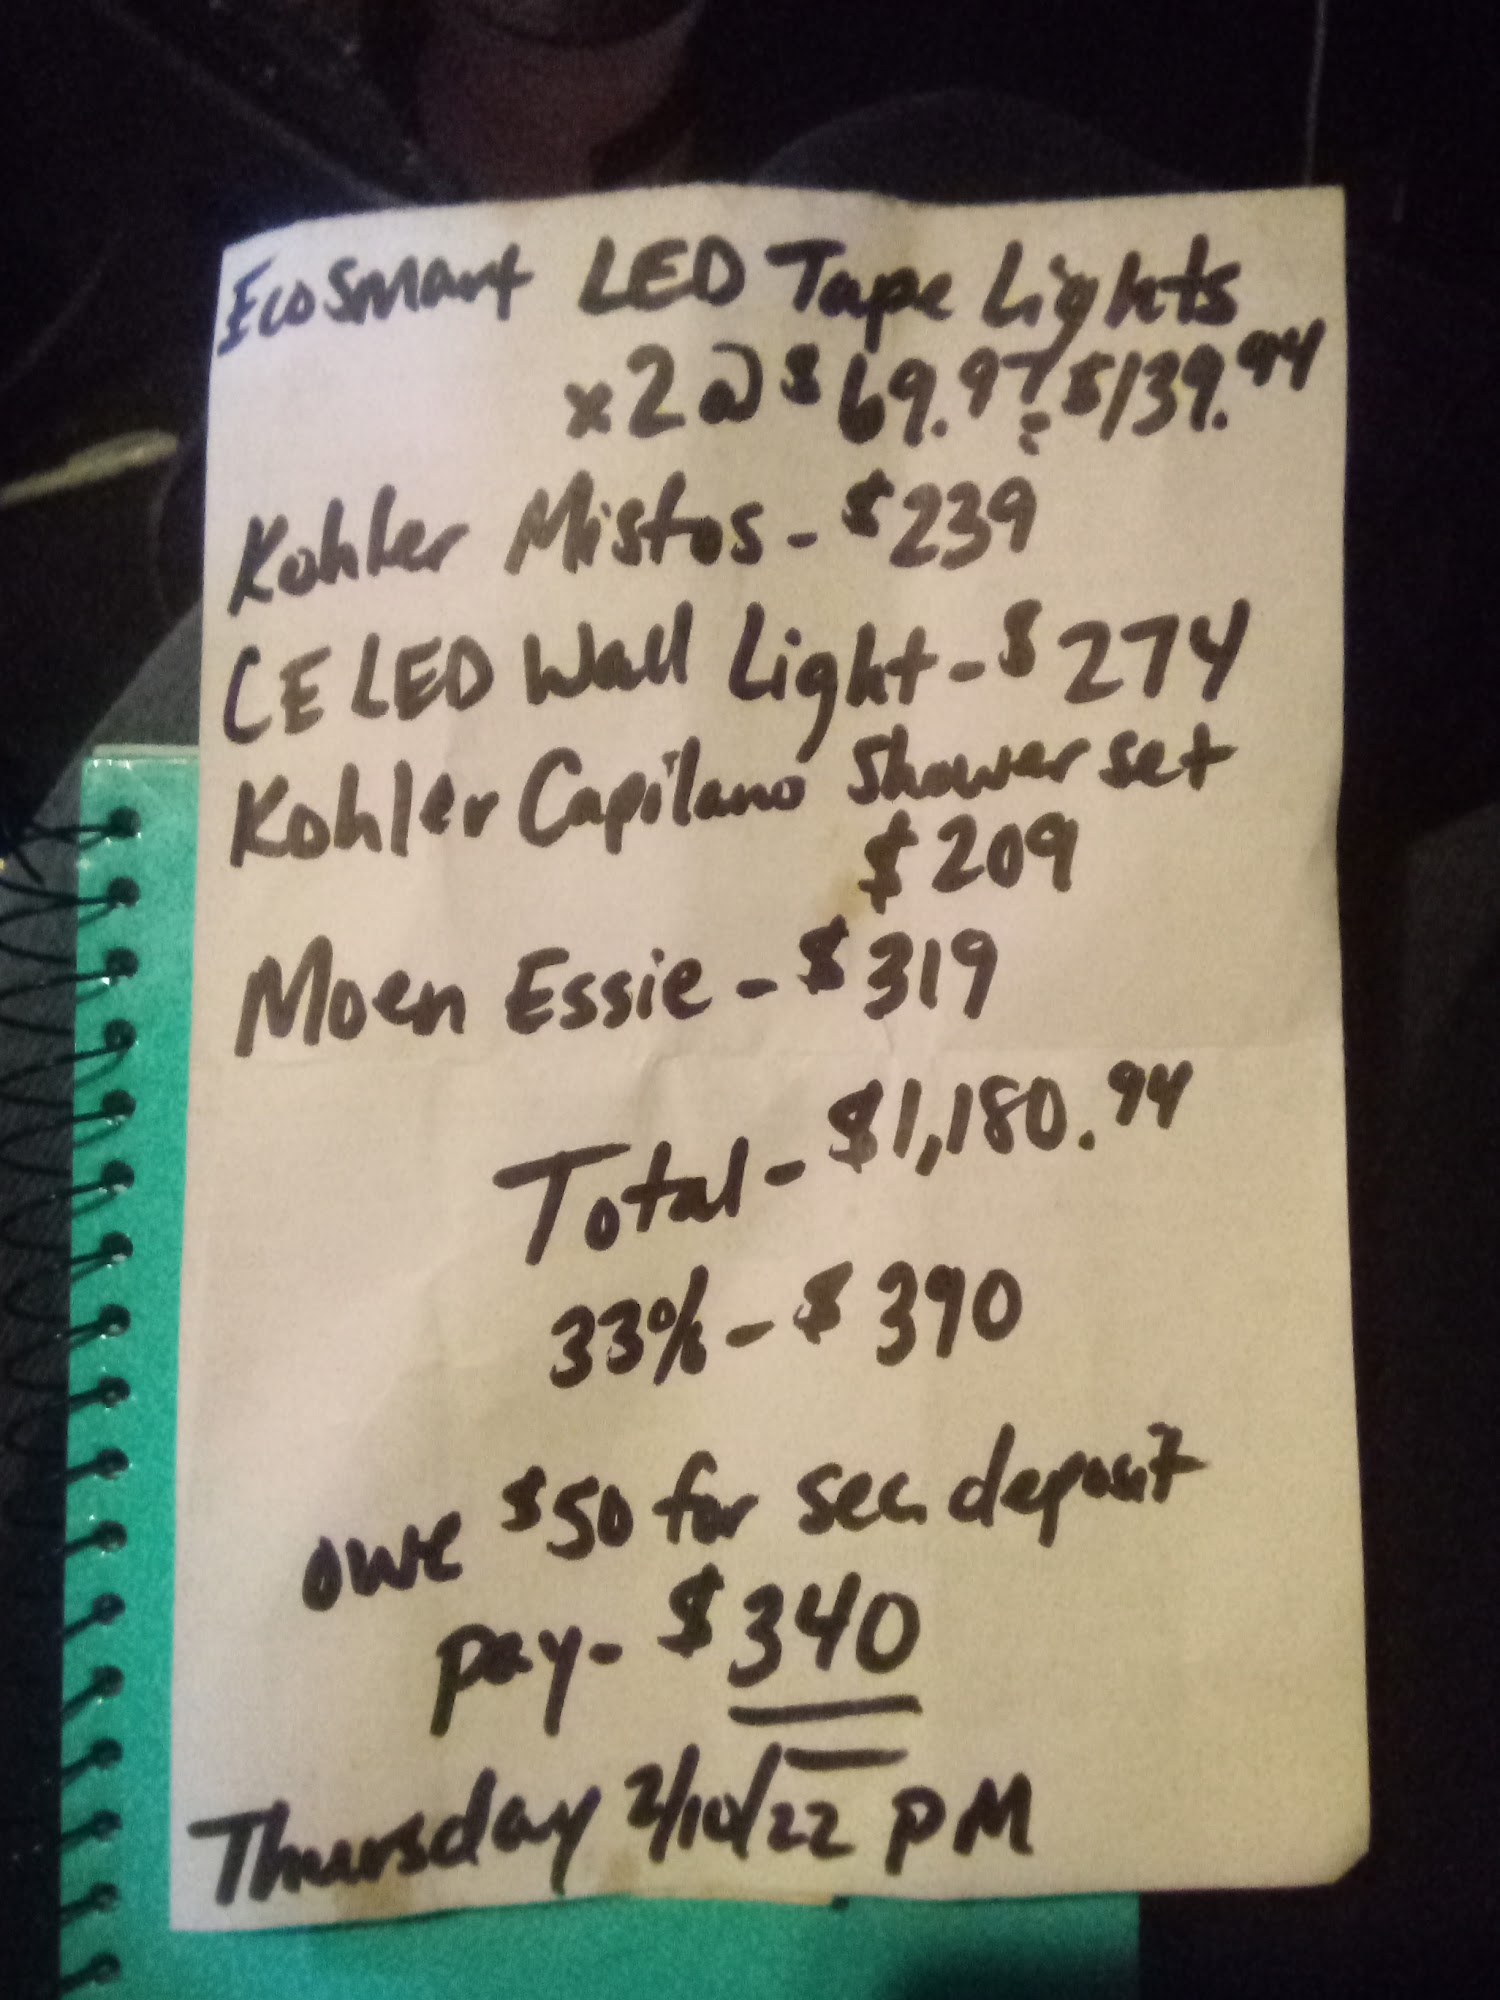 EcoSmart LED Tape Lights
x2 @ $69.97 = $139.94
Kohler Mistos - $239
CE LED Wall Light - $274
Kohler Capilano Shower set
$209
Moen Essie - $319
Total - $1,180.94
33% - $390
owe $50 for sec. deposit
pay - $340
Thursday 2/10/22 PM